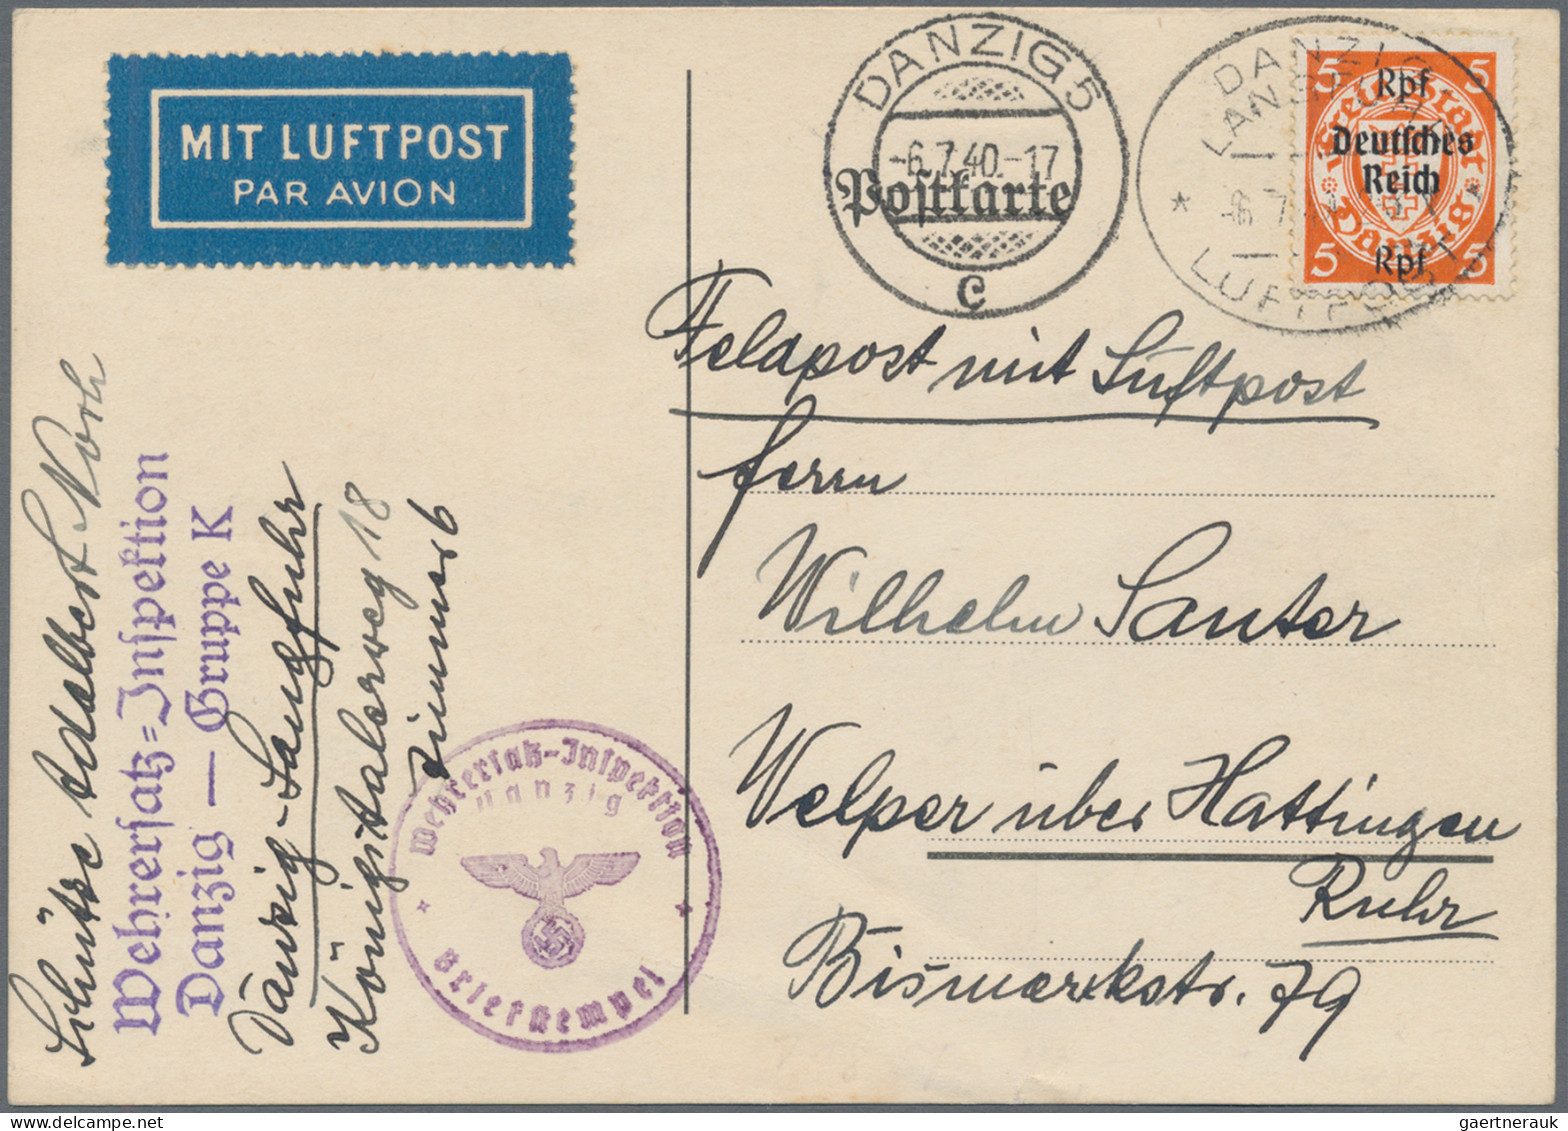 MIT LUFTPOST
PAR AVION
DANZIG 5
-6.7.40.-17
c
Postkarte
DANZIG
LANGFUHR
LUFTPOST
5 Rpf 5
Deutsches
Reich
Freie Stadt Danzig
5 Rpf 5
Feldpost mit Luftpost
Herrn
Wilhelm Santer
Welper über Hattingen
Ruhr
Bismarckstr. 79
Schütze Adalbert
Wehrersatz=Inspektion
Danzig — Gruppe K
Danzig-Langfuhr
Königstalerweg 18
Zimmer 6
Wehrersatz-Inspektion
Danzig
Briefstempel
gaertnerauk